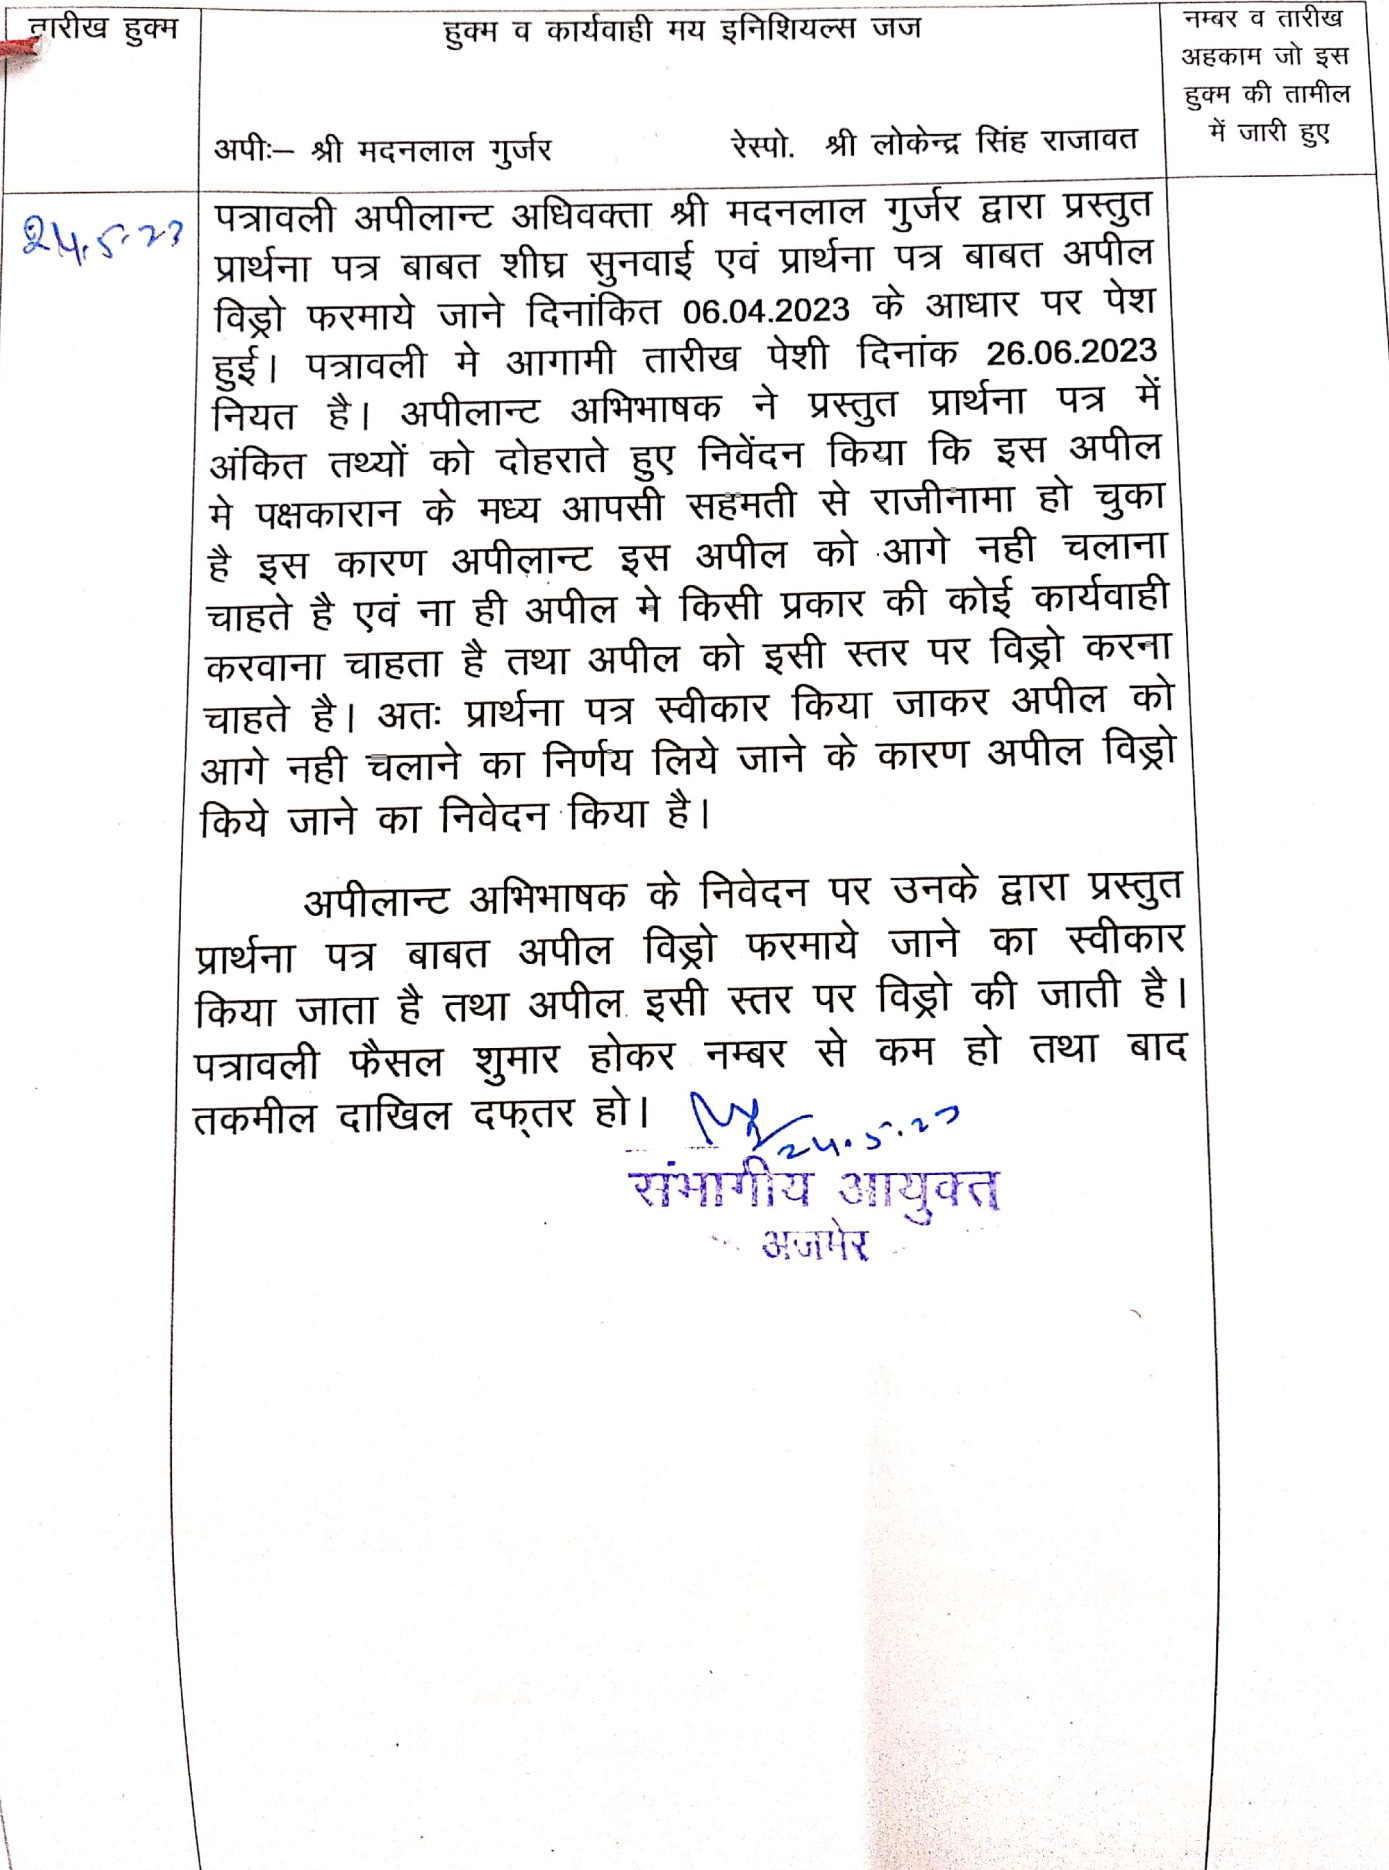 तारीख हुक्म
हुक्म व कार्यवाही मय इनिशियल्स जज
नम्बर व तारीख
अहकाम जो इस
हुक्म की तामील
में जारी हुए
अपीः– श्री मदनलाल गुर्जर रेस्पो. श्री लोकेन्द्र सिंह राजावत
24.5.23
पत्रावली अपीलान्ट अधिवक्ता श्री मदनलाल गुर्जर द्वारा प्रस्तुत
प्रार्थना पत्र बाबत शीघ्र सुनवाई एवं प्रार्थना पत्र बाबत अपील
विड्रो फरमाये जाने दिनांकित 06.04.2023 के आधार पर पेश
हुई। पत्रावली मे आगामी तारीख पेशी दिनांक 26.06.2023
नियत है। अपीलान्ट अभिभाषक ने प्रस्तुत प्रार्थना पत्र में
अंकित तथ्यों को दोहराते हुए निवेंदन किया कि इस अपील
मे पक्षकारान के मध्य आपसी सहमती से राजीनामा हो चुका
है इस कारण अपीलान्ट इस अपील को आगे नही चलाना
चाहते है एवं ना ही अपील मे किसी प्रकार की कोई कार्यवाही
करवाना चाहता है तथा अपील को इसी स्तर पर विड्रो करना
चाहते है। अतः प्रार्थना पत्र स्वीकार किया जाकर अपील को
आगे नही चलाने का निर्णय लिये जाने के कारण अपील विड्रो
किये जाने का निवेदन किया है।
अपीलान्ट अभिभाषक के निवेदन पर उनके द्वारा प्रस्तुत
प्रार्थना पत्र बाबत अपील विड्रो फरमाये जाने का स्वीकार
किया जाता है तथा अपील इसी स्तर पर विड्रो की जाती है।
पत्रावली फैसल शुमार होकर नम्बर से कम हो तथा बाद
तकमील दाखिल दफ्तर हो।
24.5.23
संभागीय आयुक्त
अजमेर